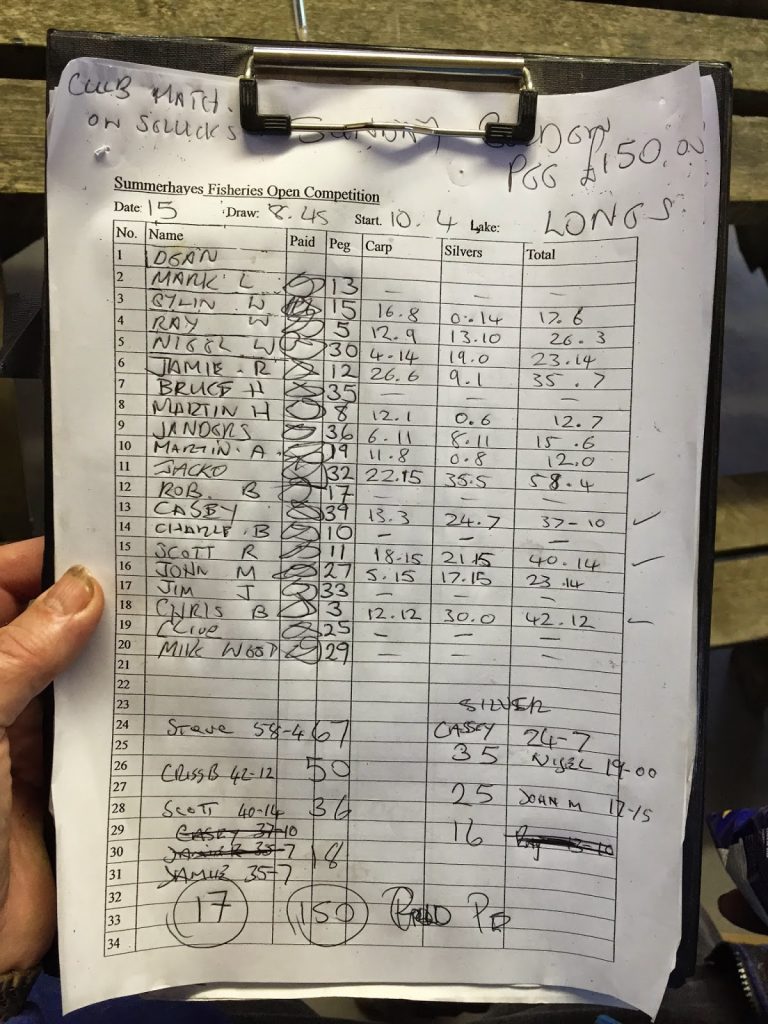 CLUB MATCH.
ON SELLICKS
SUNDAY GOLDEN
PEG £150.00
Summerhayes Fisheries Open Competition
Date: 15 Draw: 8.45 Start. 10. 4 Lake: LONGS
No. Name Paid Peg Carp Silvers Total
1 DEAN
2 MARK L 13 — — —
3 W 15 16.8 0.14 17.6
4 RAY W 5 12.9 13.10 26.3
5 NIGEL W 30 4.14 19.0 23.14
6 JAMIE. R 12 26.6 9.1 35.7
7 BRUCE H 35 — — —
8 MARTIN H 8 12.1 0.6 12.7
9 JANDERS 36 6.11 8.11 15.6
10 MARTIN. A 19 11.8 0.8 12.0
11 JACKO 32 22.15 35.5 58.4
12 ROB. B 17 — — —
13 CASEY 39 13.3 24.7 37-10
14 CHARLE. B 10 — — —
15 SCOTT R 11 18-15 21.15 40.14
16 JOHN M 27 5.15 17.15 23.14
17 JIM J 33 — — —
18 CHRIS B 3 12.12 30.0 42.12
19 CLIVE 25 — — —
20 MIKE WOOD 29 — — —
21
22
23 SILVER
24 Steve 58-4 67 CASEY 24-7
25 35 NIGEL 19-00
26 CRISS B 42-12 50
27 25 JOHN M 17-15
28 SCOTT 40-14 36
29 CASEY 37-10 16 Ray 13-10
30 JAMIE R 35-7 18
31 JAMIE 35-7
32
33 17 150
34